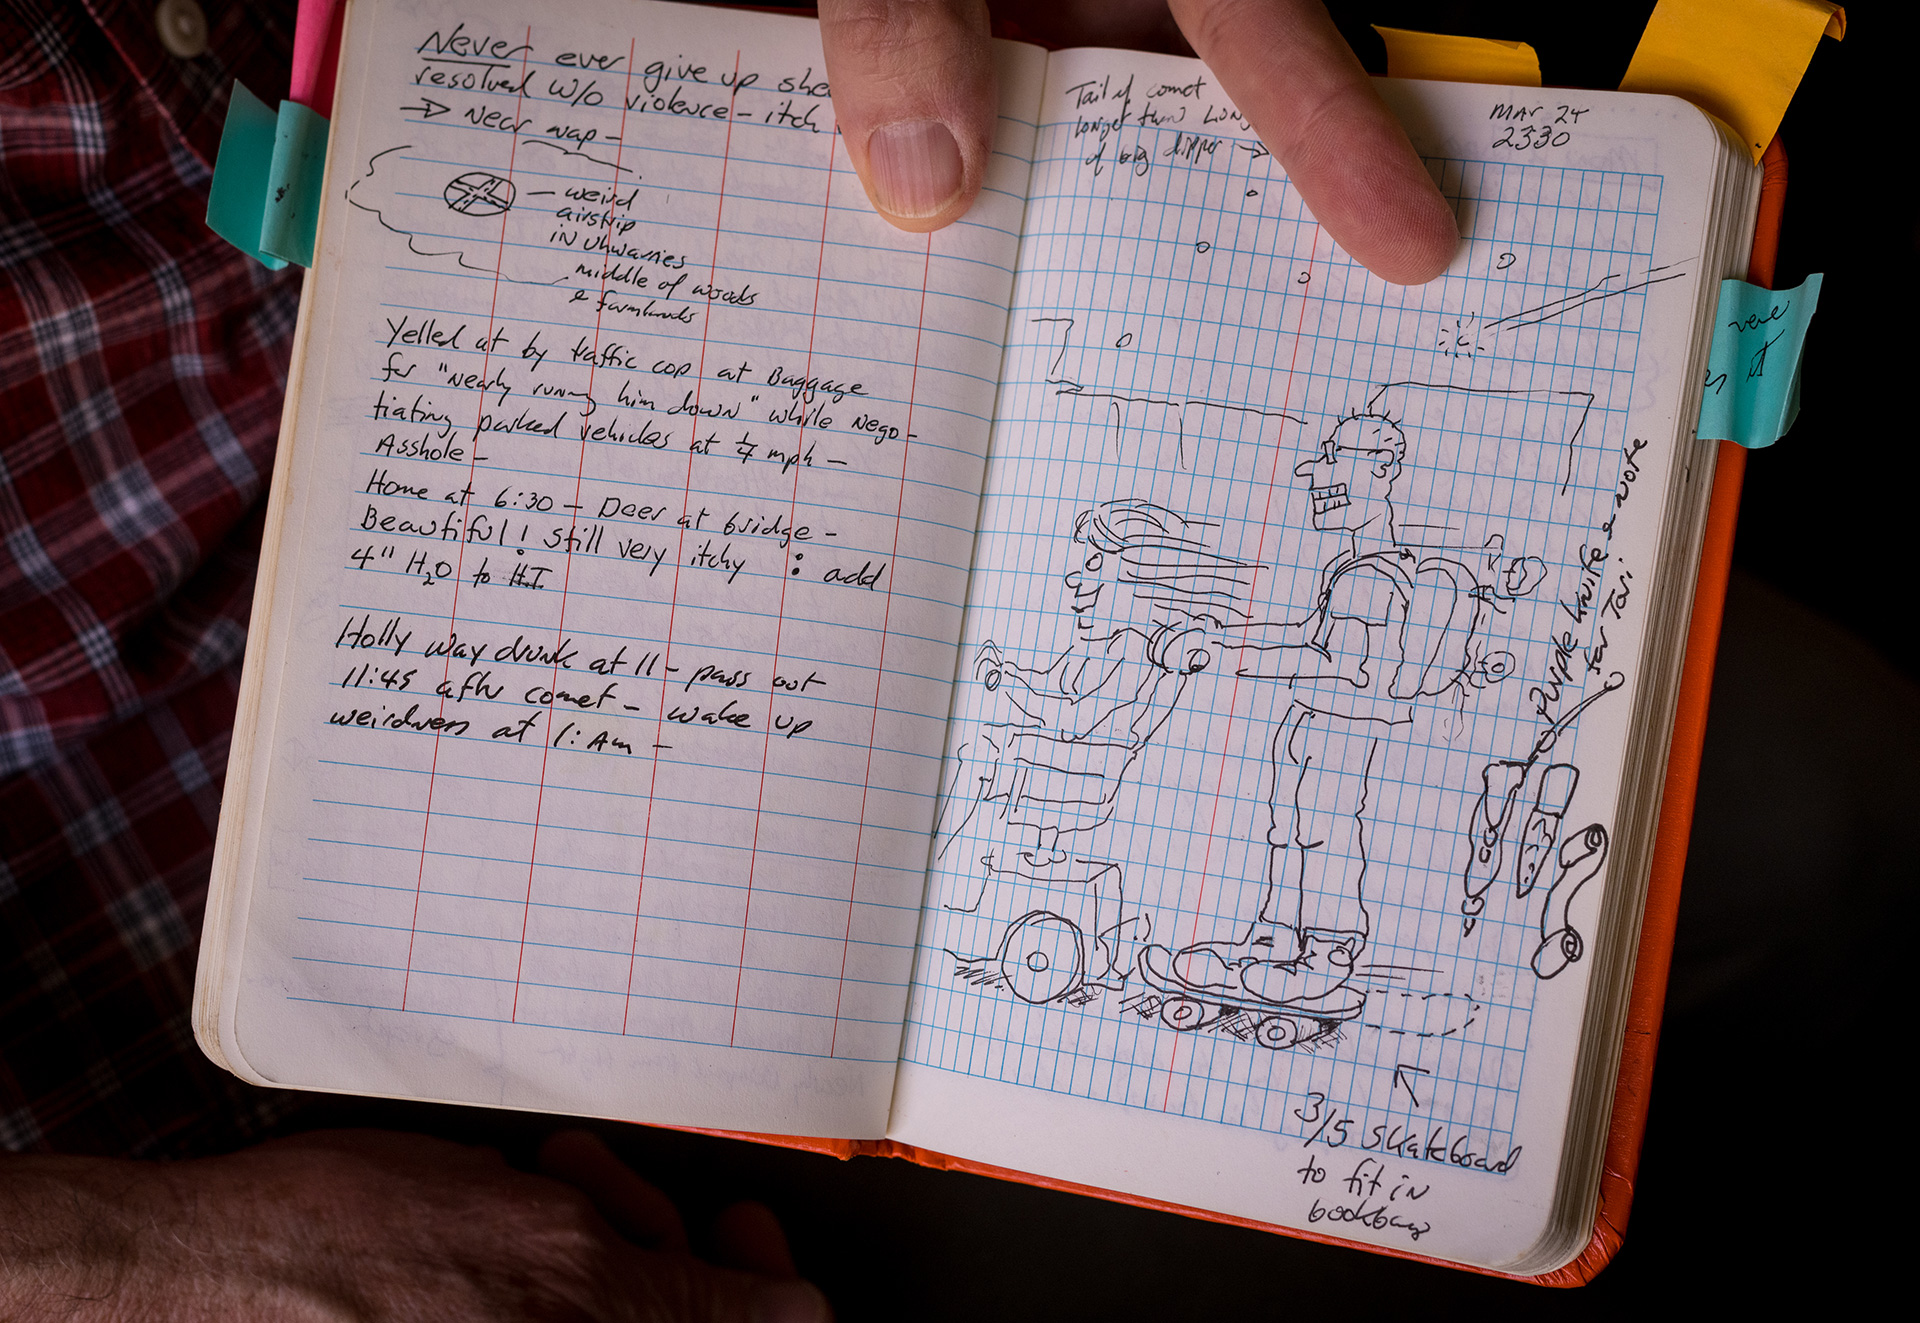 Never ever give up
resolved w/o violence - itch
→ Near nap -
- weird
airstrip
in Uhwarries
middle of woods
& farmlands
Yelled at by traffic cop at Baggage
for "nearly runng him down" while nego-
tiating parked vehicles at 1/4 mph -
Asshole -
Home at 6:30 - Deer at bridge -
Beautiful! Still very itchy : add
4" H2O to H.T.
Holly way drunk at 11 - pass out
11:45 after comet - wake up
weirdness at 1: Am -
Tail of comet
longer than
of big dipper →
MAR 24
2330
Purple knife & note
for Tori
3/5 skateboard
to fit in
bookbag
it